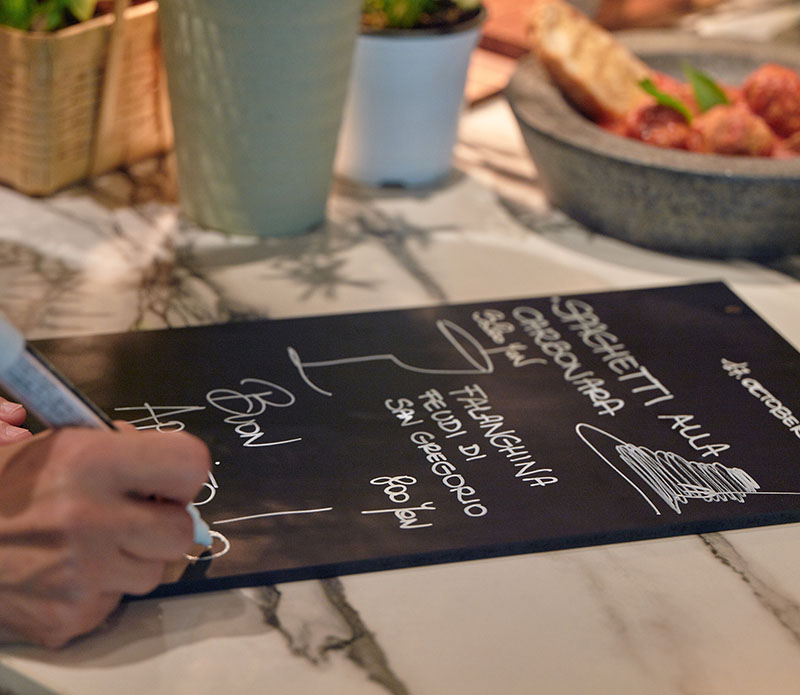 OCTOBER
SPAGHETTI ALLA
CARBONARA
Yen
FALANGHINA
FEUDI DI
SAN GREGORIO
800 Yen
Buon